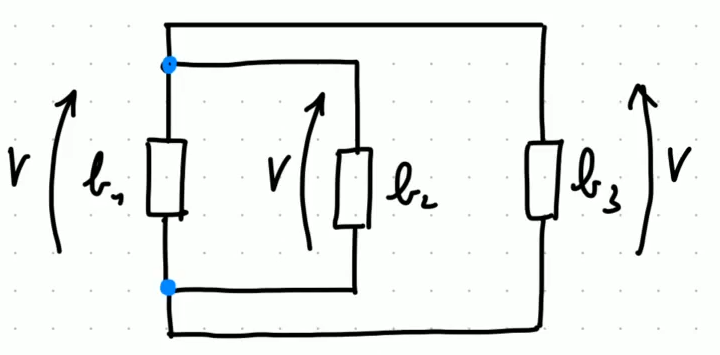 V
b₁
V
b₂
b₃
V